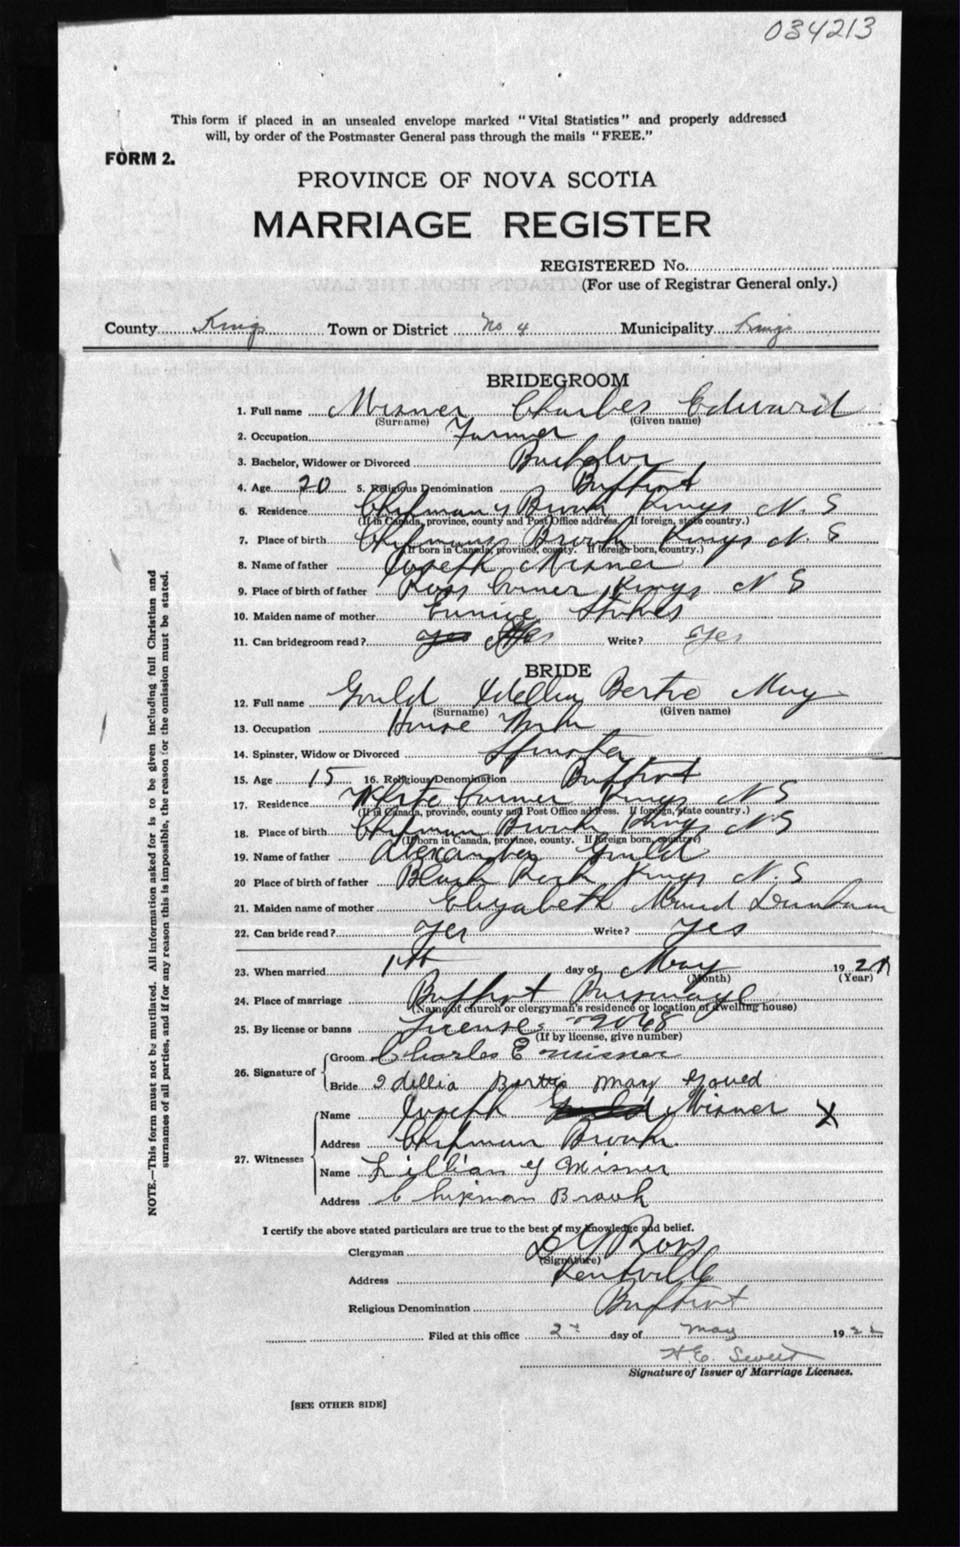 034213
This form if placed in an unsealed envelope marked "Vital Statistics" and properly addressed
will, by order of the Postmaster General pass through the mails "FREE."
FORM 2.
PROVINCE OF NOVA SCOTIA
MARRIAGE REGISTER
REGISTERED No.
(For use of Registrar General only.)
County Kings Town or District No 4 Municipality Kings
BRIDEGROOM
1. Full name Misner Charles Edward
(Surname) (Given name)
2. Occupation Farmer
3. Bachelor, Widower or Divorced Bachelor
4. Age 20 5. Religious Denomination Baptist
6. Residence Chipmans Brook Kings N. S
(If in Canada, province, county and Post Office address. If foreign, state country.)
7. Place of birth Chipmans Brook Kings N. S
(If born in Canada, province, county. If foreign born, country.)
8. Name of father Joseph Misner
9. Place of birth of father Ross Corner Kings N S
10. Maiden name of mother Eunice Stokes
11. Can bridegroom read? Yes Write? Yes
BRIDE
12. Full name Gould Idellia Bertie May
(Surname) (Given name)
13. Occupation House Work
14. Spinster, Widow or Divorced Spinster
15. Age 15 16. Religious Denomination Baptist
17. Residence White Corner Kings N S
(If in Canada, province, county and Post Office address. If foreign, state country.)
18. Place of birth Chipman Brook Kings N S
(If born in Canada, province, county. If foreign born, country)
19. Name of father Alexander Gould
20 Place of birth of father Black Rock Kings N. S
21. Maiden name of mother Elizabeth Maud Dunham
22. Can bride read? Yes Write? Yes
23. When married 1st day of May 192
(Month) (Year)
24. Place of marriage Baptist Parsonage
(Name of church or clergyman's residence or location of dwelling house)
25. By license or banns License 22068
(If by license, give number)
26. Signature of
Groom Charles E Misner
Bride Idellia Bertie May Goued
27. Witnesses
Name Joseph Gould Misner X
Address Chipman Brook
Name Lillian G Misner
Address Chipman Brook
I certify the above stated particulars are true to the best of my knowledge and belief.
Clergyman Ross
(Signature)
Address Kentville
Religious Denomination Baptist
Filed at this office 2 day of May 192
H E. Sweet
Signature of Issuer of Marriage Licenses.
[SEE OTHER SIDE]
NOTE.—This form must not be mutilated. All information asked for is to be given including full Christian and
surnames of all parties, and if for any reason this is impossible, the reason for the omission must be stated.